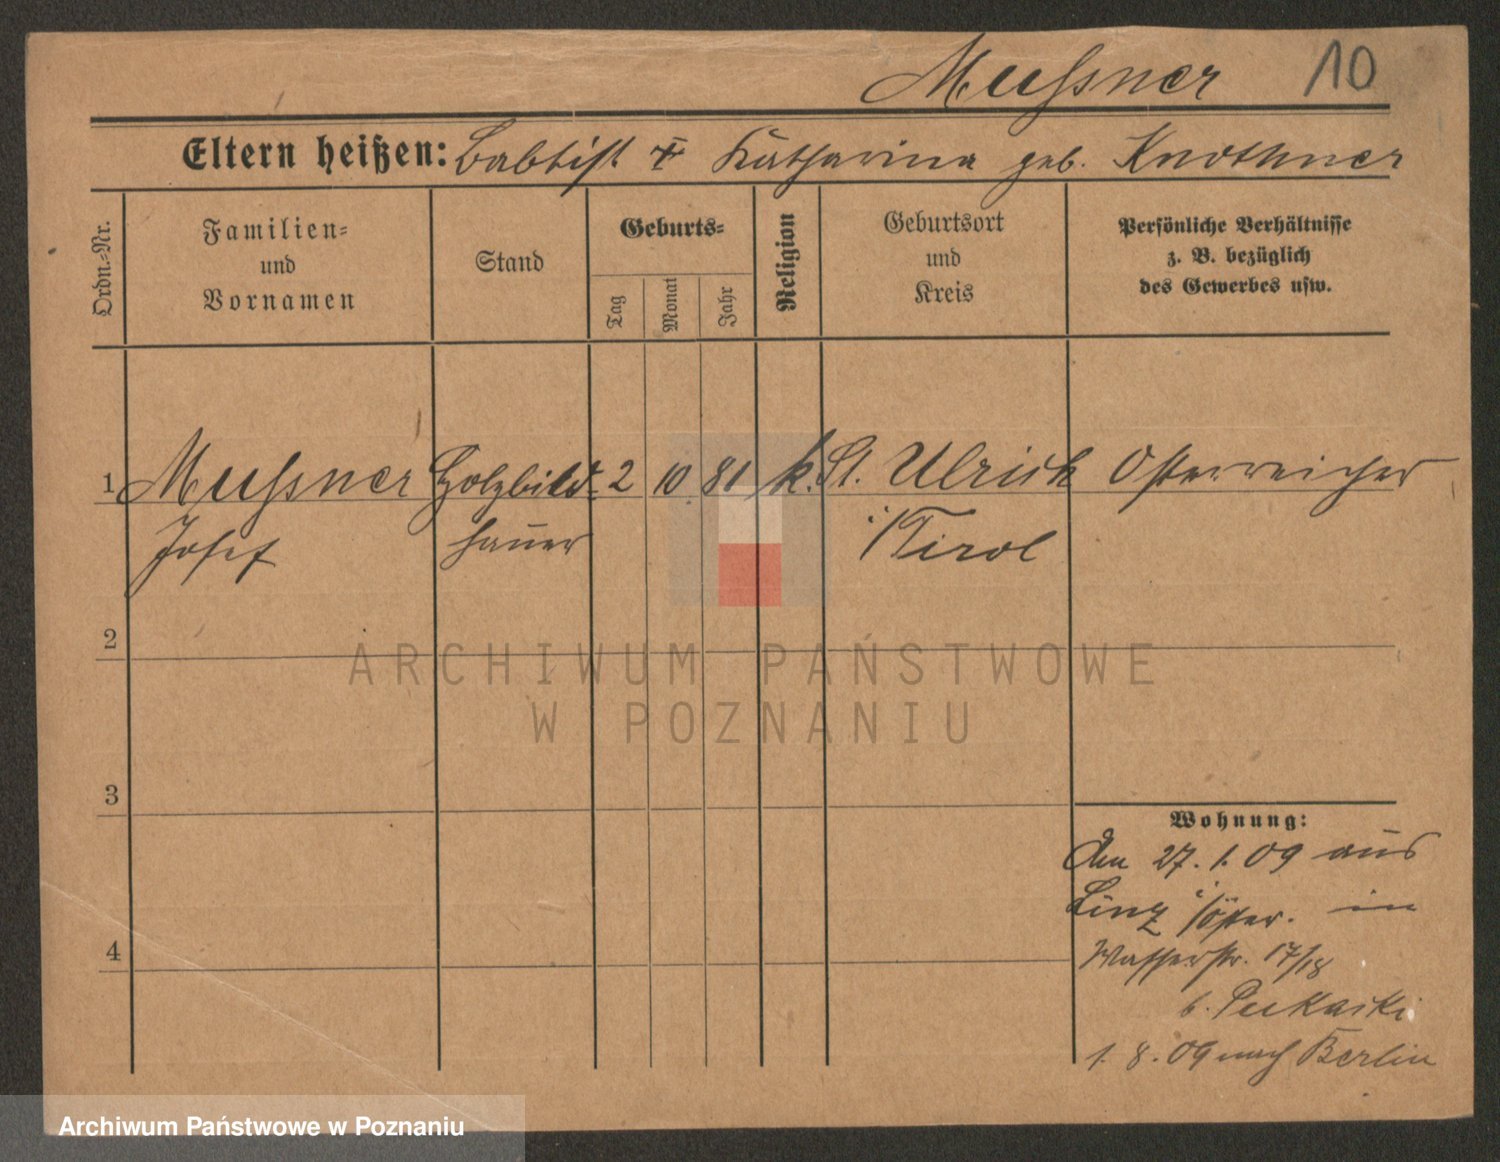 Mussner 10
Eltern heißen: Babtist + Katharina geb. Knothner
Ordn.-Nr.
Familien-
und
Vornamen
Stand
Geburts-
Tag
Monat
Jahr
Religion
Geburtsort
und
Kreis
Persönliche Verhältnisse
z. B. bezüglich
des Gewerbes usw.
1 Mussner Holzbild- 2 10 81 k. St. Ulrich Österreicher
Josef hauer i/Tirol
2
ARCHIWUM PAŃSTWOWE
W POZNANIU
3
Wohnung:
Am 27. 1. 09 aus
Linz i/Öster. in
4
Wasserstr. 17/18
b. Piekarski
1. 8. 09 nach Berlin
Archiwum Państwowe w Poznaniu